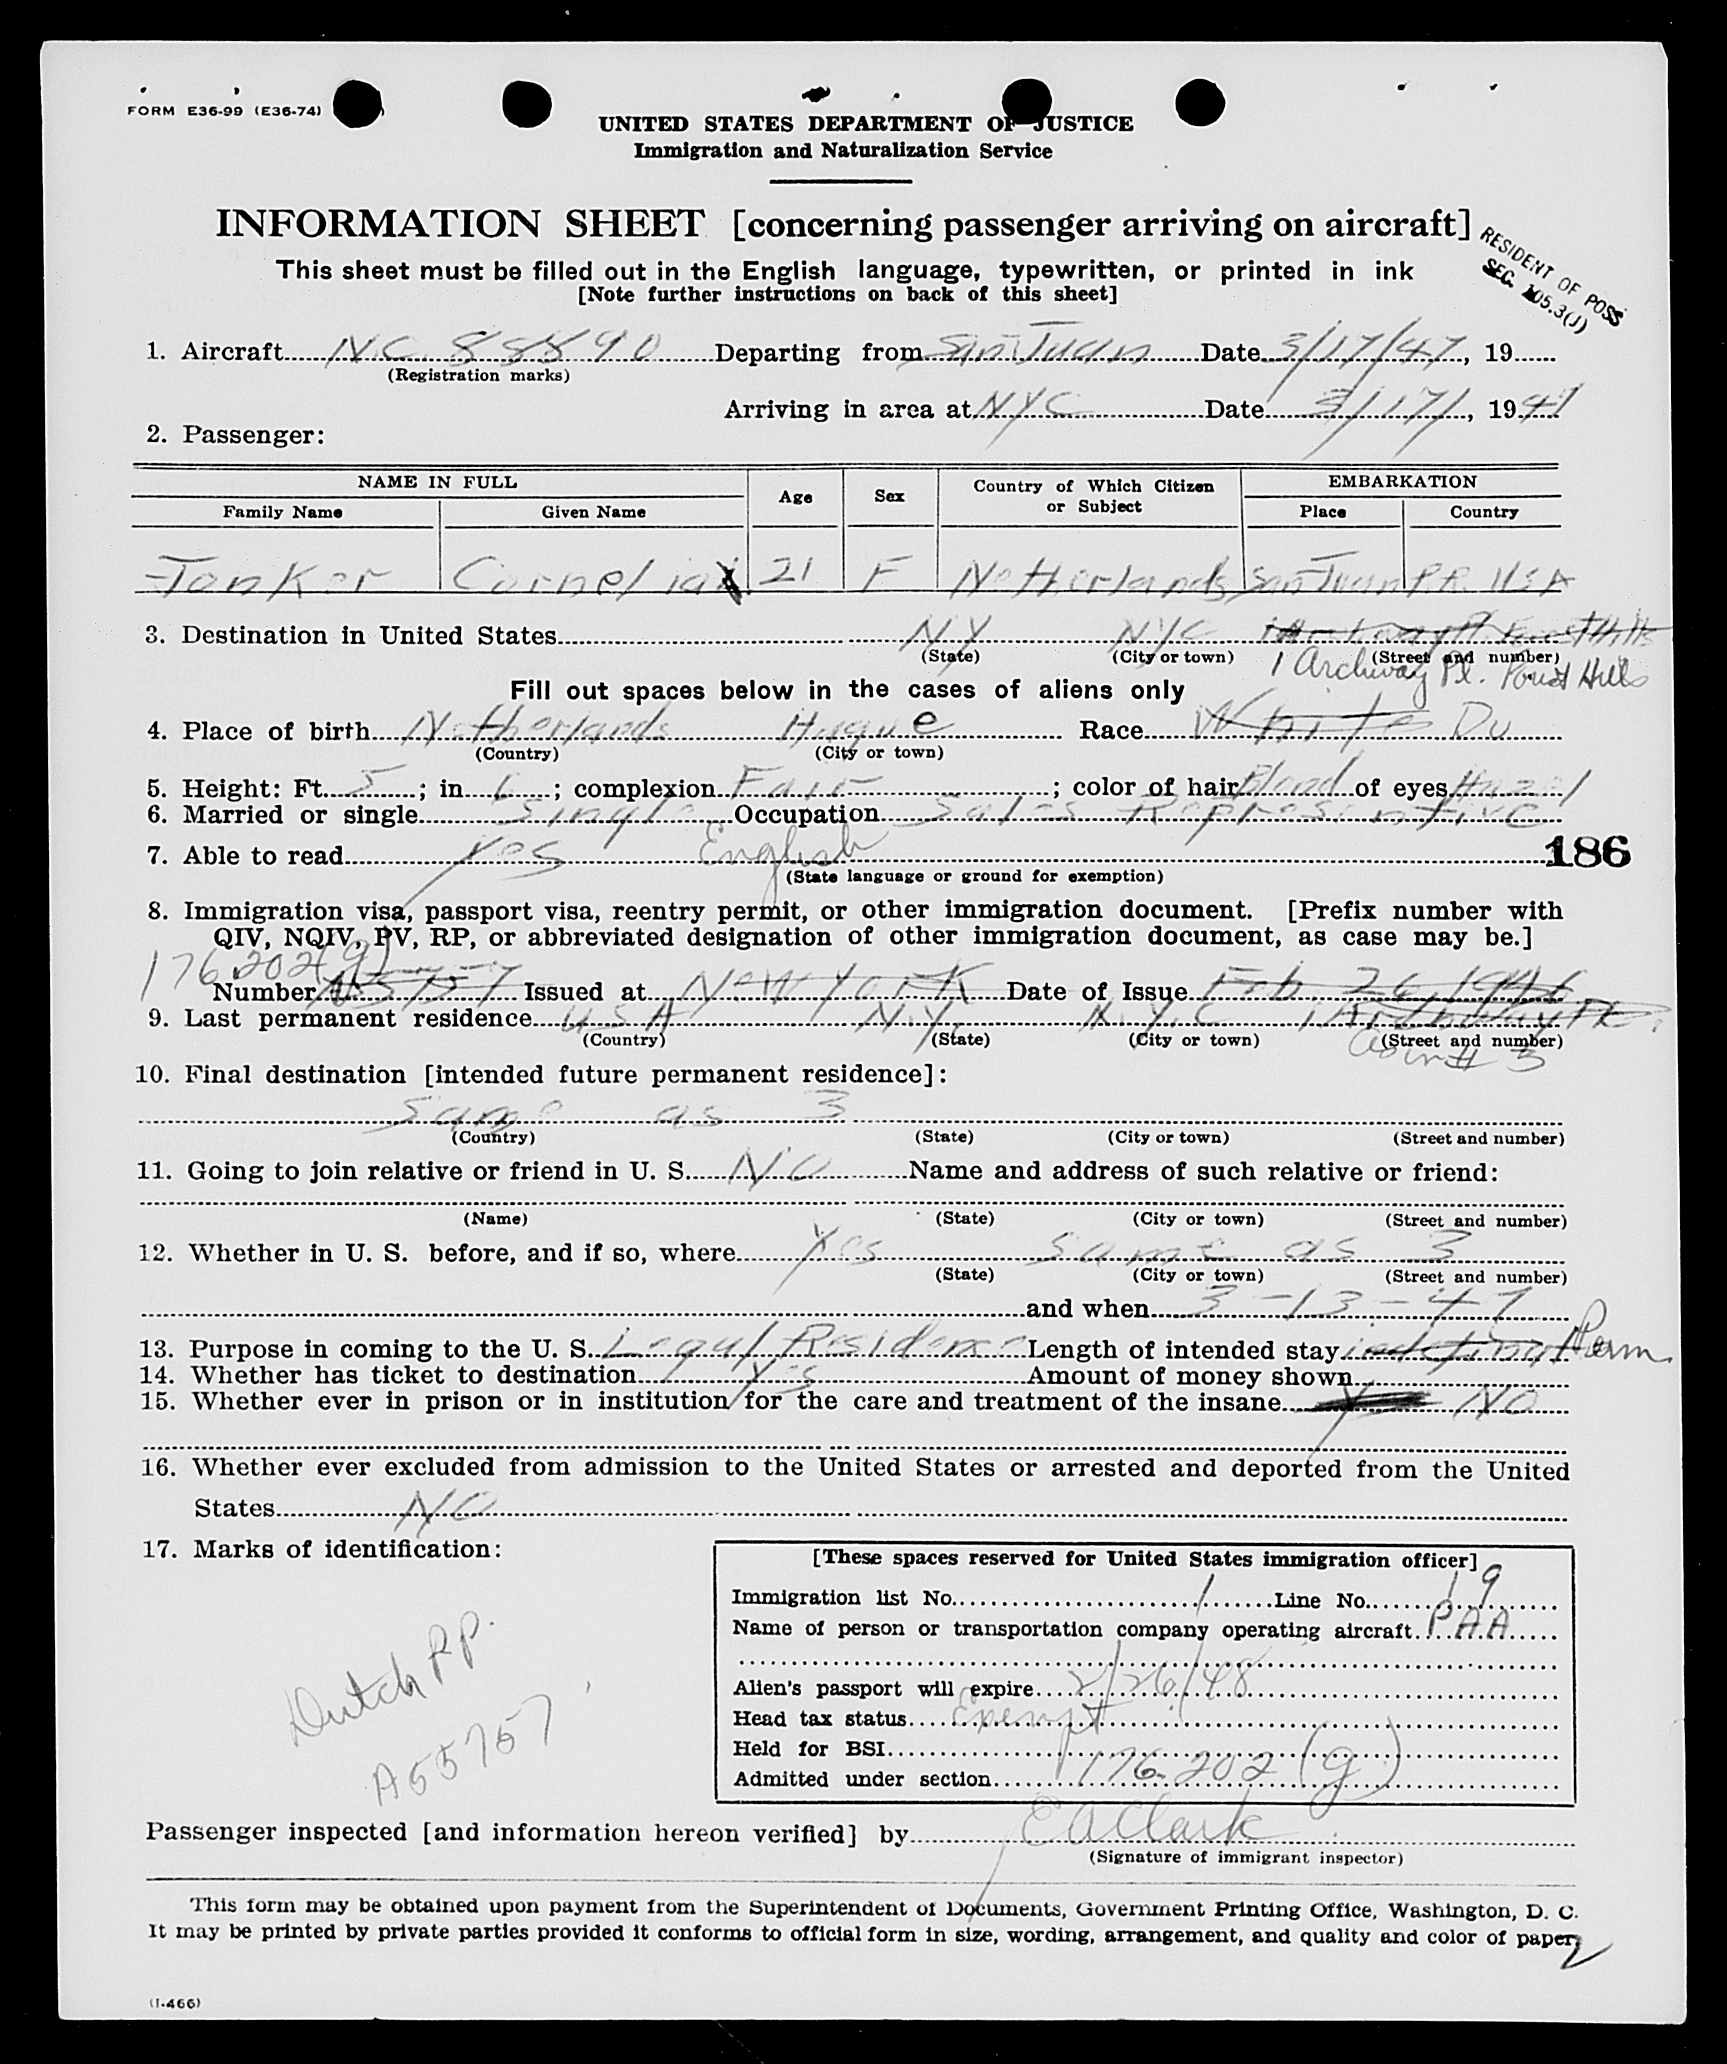 FORM E36-99 (E36-74)
UNITED STATES DEPARTMENT OF JUSTICE
Immigration and Naturalization Service
INFORMATION SHEET [concerning passenger arriving on aircraft]
RESIDENT OF POSS
SEC. 105.3(J)
This sheet must be filled out in the English language, typewritten, or printed in ink
[Note further instructions on back of this sheet]
1. Aircraft NC 88890 Departing from San Juan Date 3/17/47, 19
(Registration marks)
Arriving in area at NYC Date 3/17/, 1947
2. Passenger:
NAME IN FULL Age Sex Country of Which Citizen or Subject EMBARKATION
Family Name Given Name Place Country
Jonker Cornelia 21 F Netherlands San Juan P.R. USA
3. Destination in United States NY NYC 1 Archway Pl. Forest Hills
(State) (City or town) (Street and number)
1 Archway Pl. Forest Hills
Fill out spaces below in the cases of aliens only
4. Place of birth Netherlands Hague Race White Du
(Country) (City or town)
5. Height: Ft. 5; in. 6; complexion Fair; color of hair Blond of eyes Hazel
6. Married or single Single Occupation Sales Representive
7. Able to read Yes English 186
(State language or ground for exemption)
8. Immigration visa, passport visa, reentry permit, or other immigration document. [Prefix number with
QIV, NQIV, PV, RP, or abbreviated designation of other immigration document, as case may be.]
176.202(g)
Number A55757 Issued at New York Date of Issue Feb 26, 1946
9. Last permanent residence USA N.Y. N.Y.C 1 Archway Pl.
(Country) (State) (City or town) (Street and number)
as in # 3
10. Final destination [intended future permanent residence]:
Same as 3
(Country) (State) (City or town) (Street and number)
11. Going to join relative or friend in U. S. NO Name and address of such relative or friend:
(Name) (State) (City or town) (Street and number)
12. Whether in U. S. before, and if so, where Yes same as 3
(State) (City or town) (Street and number)
and when 3-13-47
13. Purpose in coming to the U. S. Legal Residence Length of intended stay indefinit Perm.
14. Whether has ticket to destination Yes Amount of money shown
15. Whether ever in prison or in institution for the care and treatment of the insane NO
16. Whether ever excluded from admission to the United States or arrested and deported from the United
States NO
17. Marks of identification:
Dutch P.P.
A55757
[These spaces reserved for United States immigration officer]
Immigration list No. 1 Line No. 19
Name of person or transportation company operating aircraft PAA
Alien's passport will expire 2/26/48
Head tax status Exempt
Held for BSI
Admitted under section 176.202(g)
Passenger inspected [and information hereon verified] by E A Clark
(Signature of immigrant inspector)
This form may be obtained upon payment from the Superintendent of Documents, Government Printing Office, Washington, D. C.
It may be printed by private parties provided it conforms to official form in size, wording, arrangement, and quality and color of paper.
(I-466)